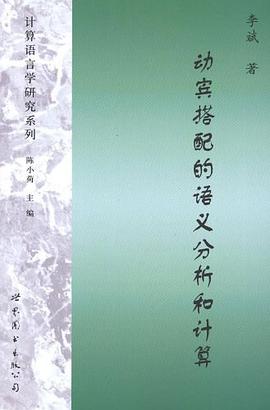 李斌 著
动宾搭配的语义分析和计算
计算语言学研究系列
陈小荷 主编
世界图书出版公司